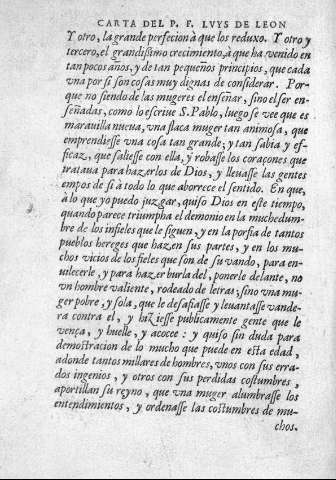 CARTA DEL P. F. LVYS DE LEON
Y otro, la grande perfecion à que los reduxo. Y otro y
tercero, el grandissimo crecimiento, à que ha venido en
tan pocos años, y de tan pequeños principios, que cada
vna por si son cosas muy dignas de considerar. Por-
que no siendo de las mugeres el enseñar, sino el ser en-
señadas, como lo escriue S. Pablo, luego se vee que es
marauilla nueua, vna flaca muger tan animosa, que
emprendiesse vna cosa tan grande; y tan sabia y ef-
ficaz, que saliesse con ella, y robasse los coraçones que
trataua para hazerlos de Dios, y lleuasse las gentes
empos de si à todo lo que aborrece el sentido. En que,
à lo que yo puedo juzgar, quiso Dios en este tiempo,
quando parece triumpha el demonio en la muchedum-
bre de los infieles que le siguen, y en la porfia de tantos
pueblos hereges que hazen sus partes, y en los mu-
chos vicios de los fieles que son de su vando, para en-
uilecerle, y para hazer burla del, ponerle delante, no
vn hombre valiente, rodeado de letras; sino vna mu-
ger pobre, y sola, que le desafiasse y leuantasse vande-
ra contra el, y hiziesse publicamente gente que le
vença, y huelle, y acocee: y quiso sin duda para
demostracion de lo mucho que puede en esta edad,
adonde tantos millares de hombres, vnos con sus erra-
dos ingenios, y otros con sus perdidas costumbres,
aportillan su reyno, que vna muger alumbrasse los
entendimientos, y ordenasse las costumbres de mu-
chos.